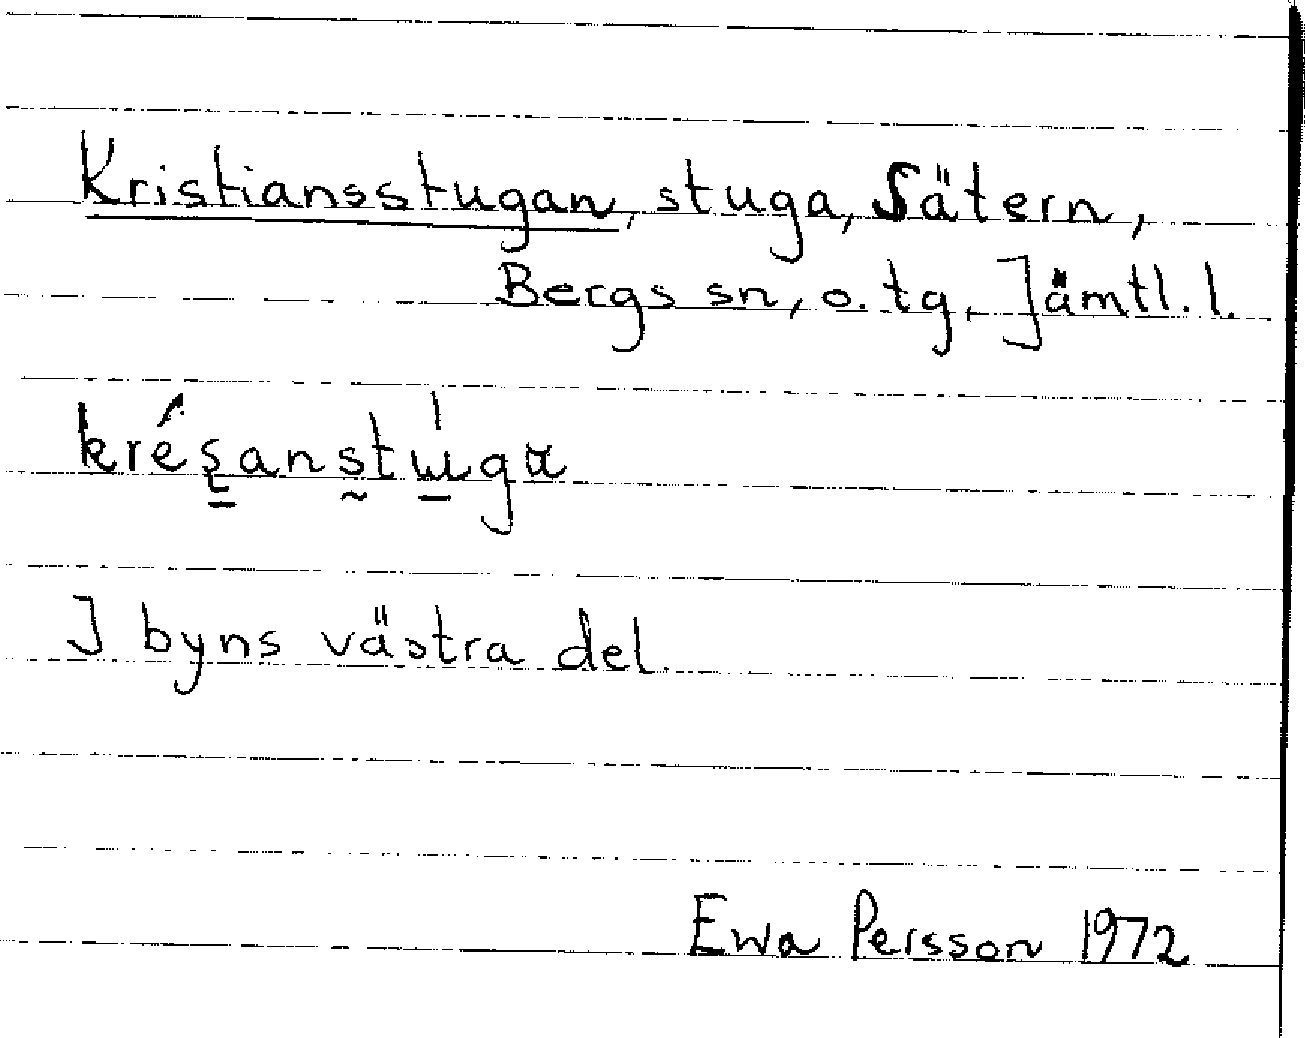 Kristiansstugan, stuga, Sätern,
Bergs sn, o. tg, Jämtl. l.
I byns västra del.
Ewa Persson 1972